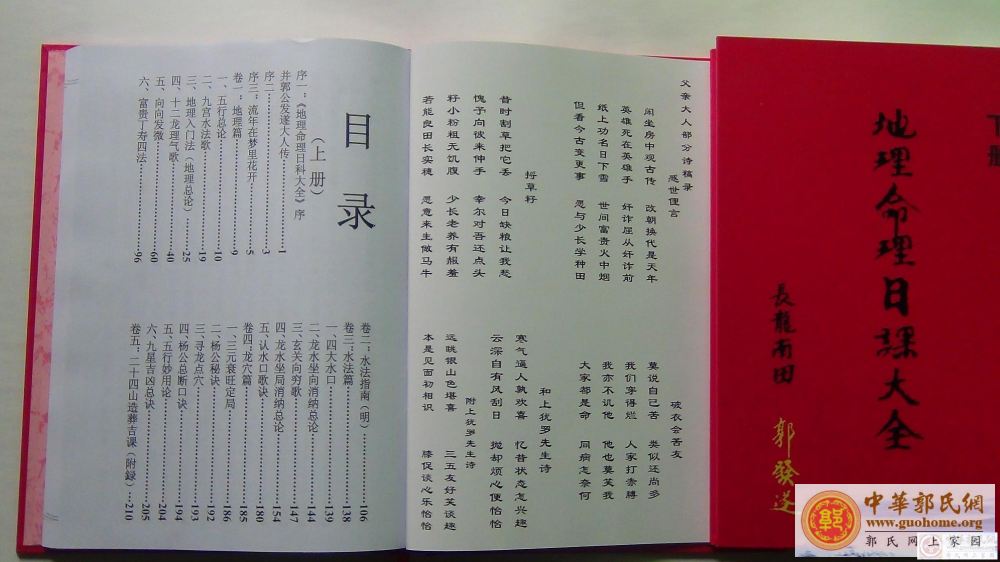 目录
（上册）
序一：《地理命理日科大全》序
并郭公发遂大人传……1
序二……3
序三：流年在梦里花开……5
卷一：地理篇……9
一、五行总论……10
二、九宫水法歌……19
三、地理入门法（地理总论）……25
四、十二龙理气歌……40
五、向向发微……60
六、富贵丁寿四法……96
卷二：水法指南（明）……106
卷三：水法篇……138
一、四大水口……139
二、龙水坐向消纳总论……144
三、玄关向穷歌……147
四、龙水坐局消纳总论……154
五、认水口歌诀……180
卷四：龙穴篇……185
一、三元衰旺定局……186
二、杨公秘诀……192
三、寻龙点穴……193
四、杨公总断口诀……194
五、五行妙用论……204
六、九星吉凶总诀……205
卷五：二十四山造葬吉课（附录）……210
父亲大人部分诗稿录
感世俚言
闲坐房中观古传 改朝换代是天年
英雄死在英雄手 奸诈屈从奸诈前
纸上功名日下雪 世间富贵火中烟
但看今古变更事 忍与少长学种田
捋草籽
昔时割草把它丢 今日缺粮让我愁
愧予向彼来伸手 幸尔对吾还点头
籽小粉粗无饥腹 少长老养有赧羞
若能良田长实穗 愿意来生做马牛
破衣会苦友
莫说自己苦 类似还尚多
我们穿得烂 人家打赤膊
我亦不讥他 他也莫笑我
大家都是命 同病怎奈何
和上犹罗先生诗
寒气逼人孰欢喜 忆昔状态怎兴趣
云深自有风刮日 抛却烦心便怡怡
附上犹罗先生诗
远眺银山色堪喜 三五友好笑谈趣
本是见面初相识 膝促谈心乐怡怡
下册
地理命理日課大全
長龍南田
郭發遂
中華郭氏網
www.guohome.org
郭氏网上家园